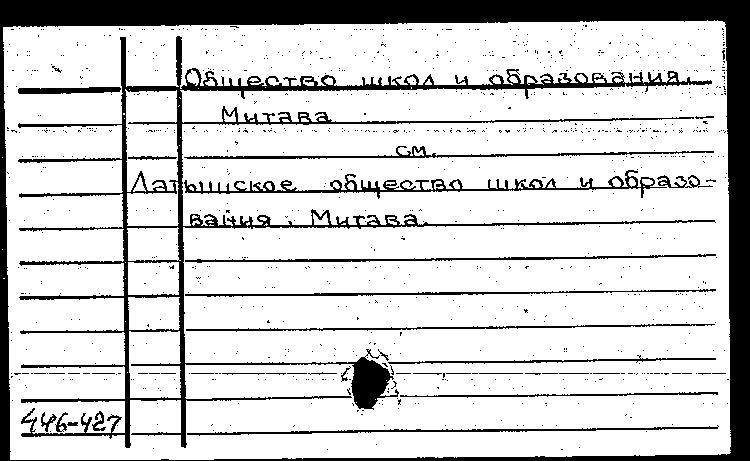 Общество школ и образования.
Митава
см.
Латышское общество школ и образо-
вания. Митава.
446-427